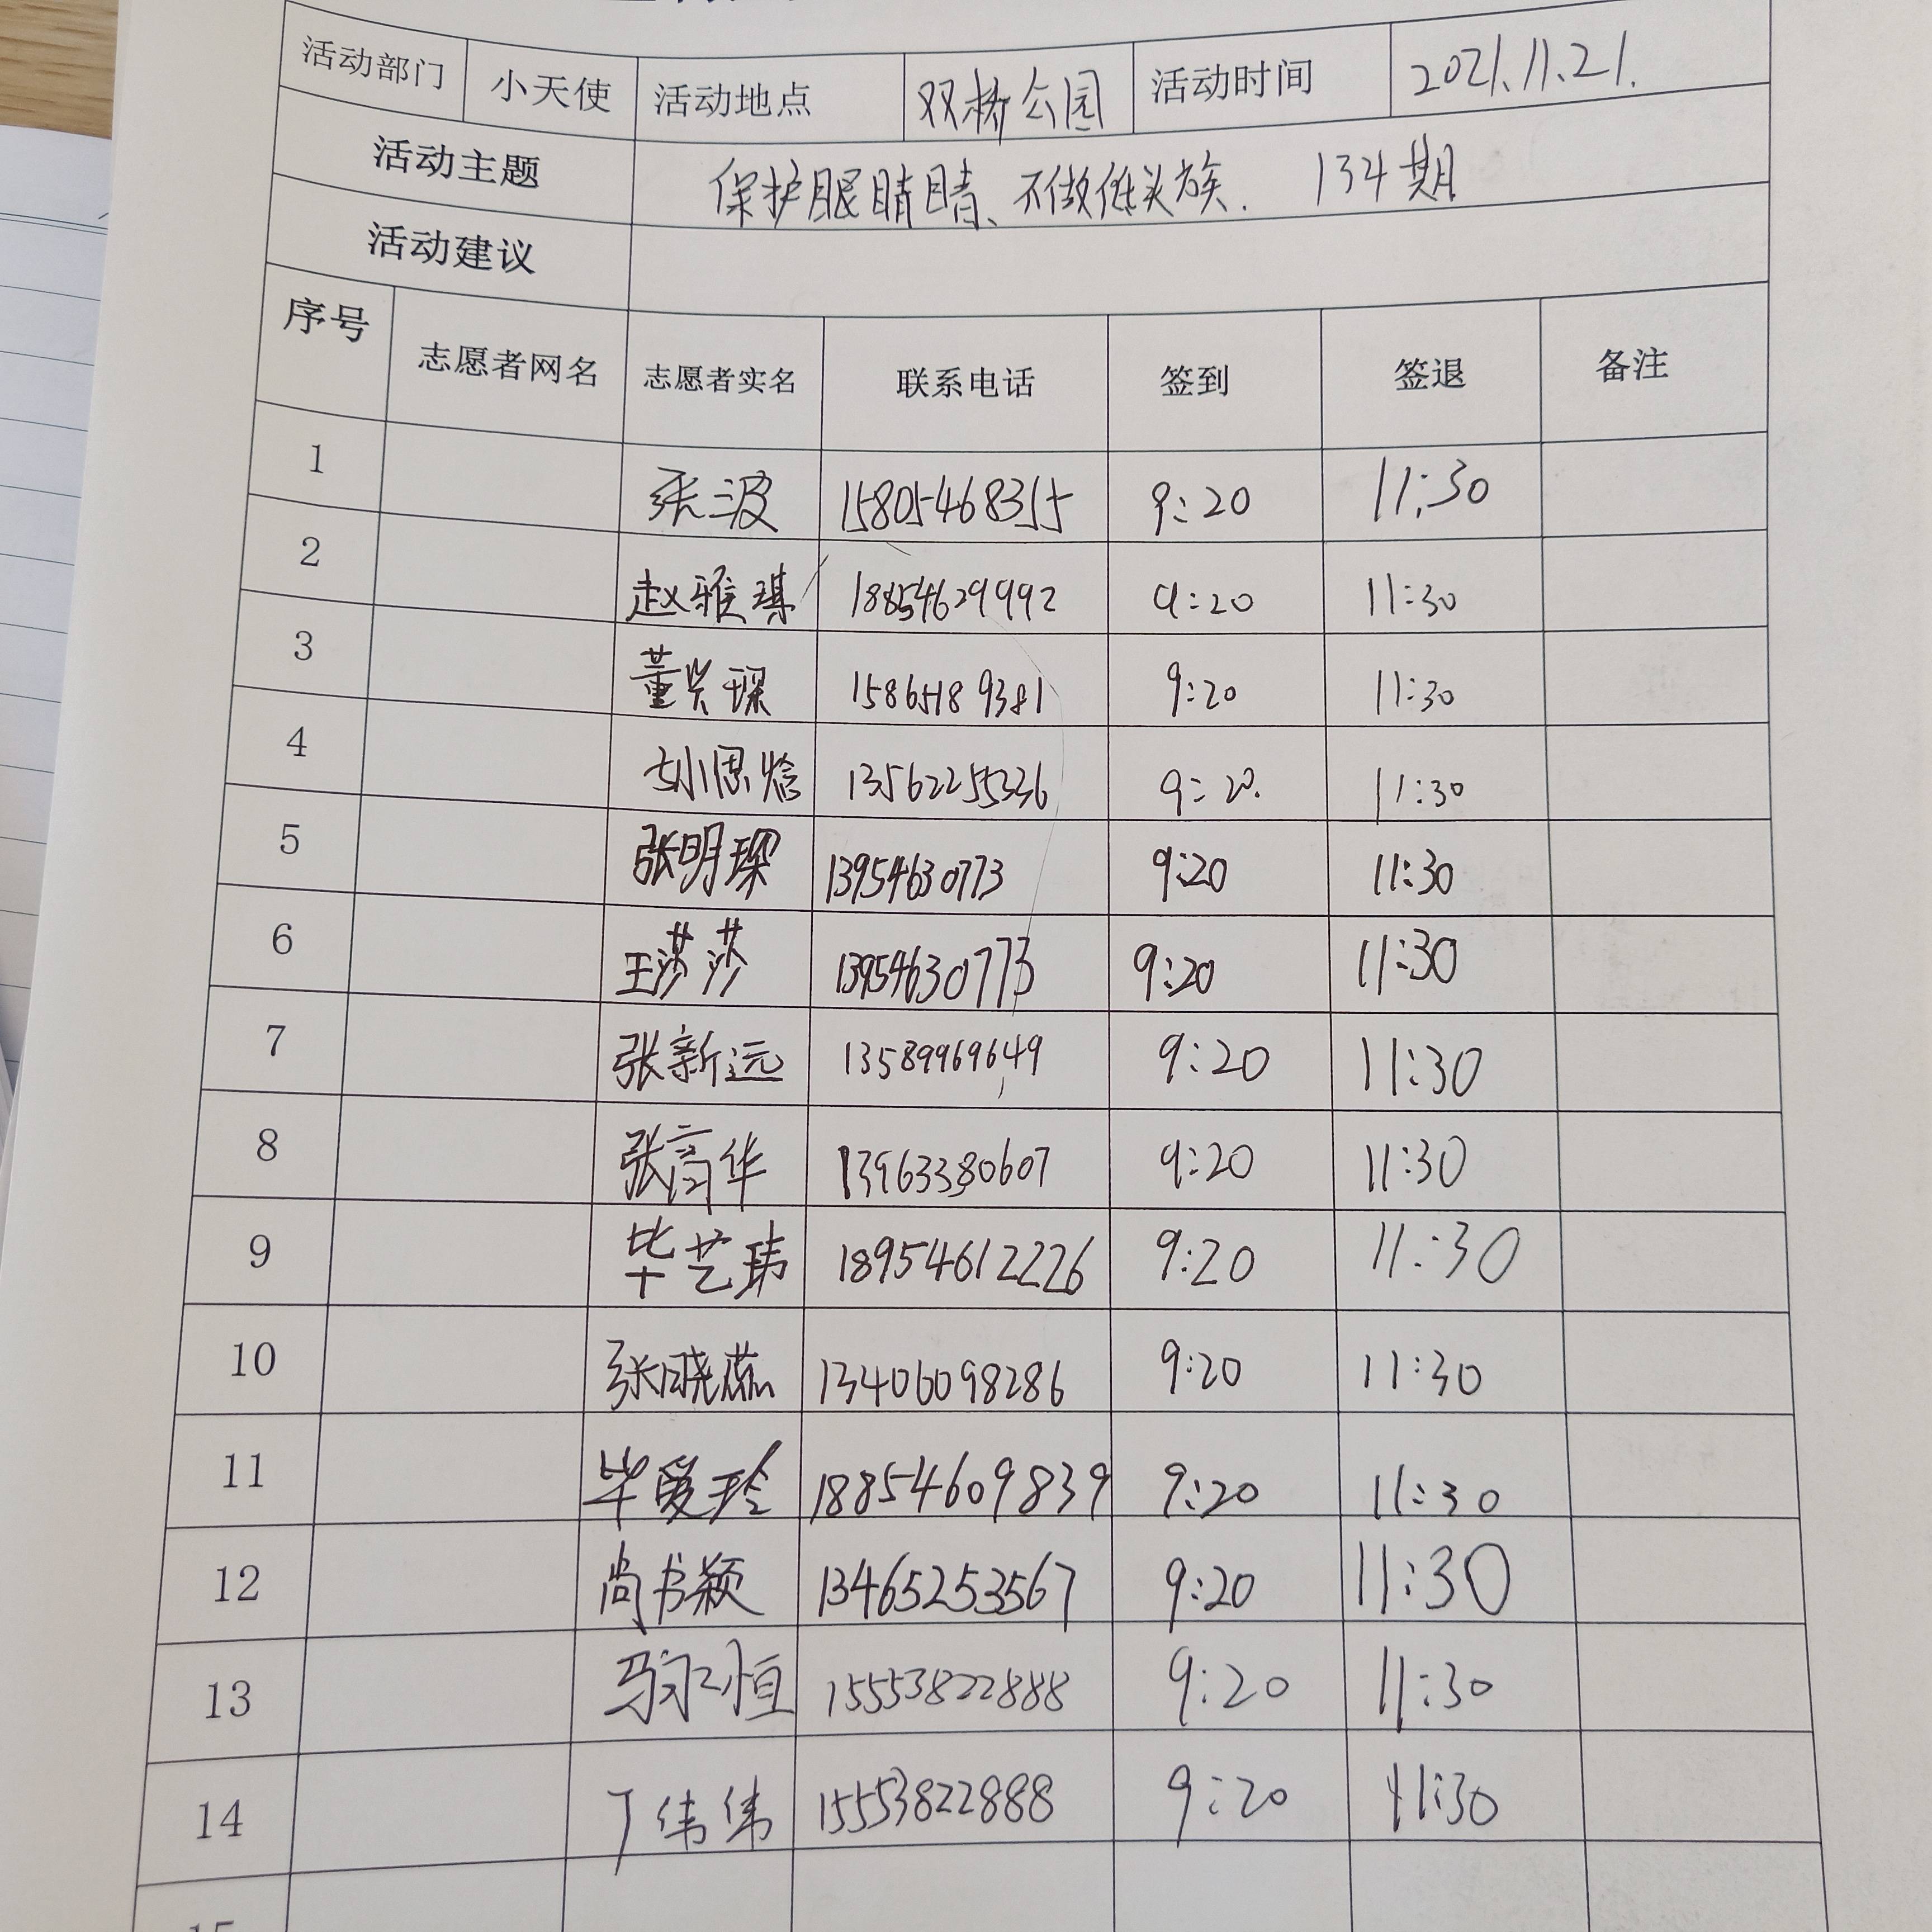 活动部门 小天使 活动地点 双桥公园 活动时间 2021.11.21.
活动主题 保护眼睛睛、不做低头族. 134期
活动建议
序号 志愿者网名 志愿者实名 联系电话 签到 签退 备注
1 张波 15805468355 9:20 11:30
2 赵雅琪 18854629992 9:20 11:30
3 董兴琛 15865189381 9:20 11:30
4 思焓 13562255336 9:20. 11:30
5 张明琛 13954630773 9:20 11:30
6 王莎莎 13954630773 9:20 11:30
7 张新远 13589969649 9:20 11:30
8 张高华 13963380607 9:20 11:30
9 毕艺玮 18954612226 9:20 11:30
10 张晓蕊 13406098286 9:20 11:30
11 毕爱玲 18854609839 9:20 11:30
12 尚书颖 13465253567 9:20 11:30
13 马永恒 15553822888 9:20 11:30
14 丁伟伟 15553822888 9:20 11:30